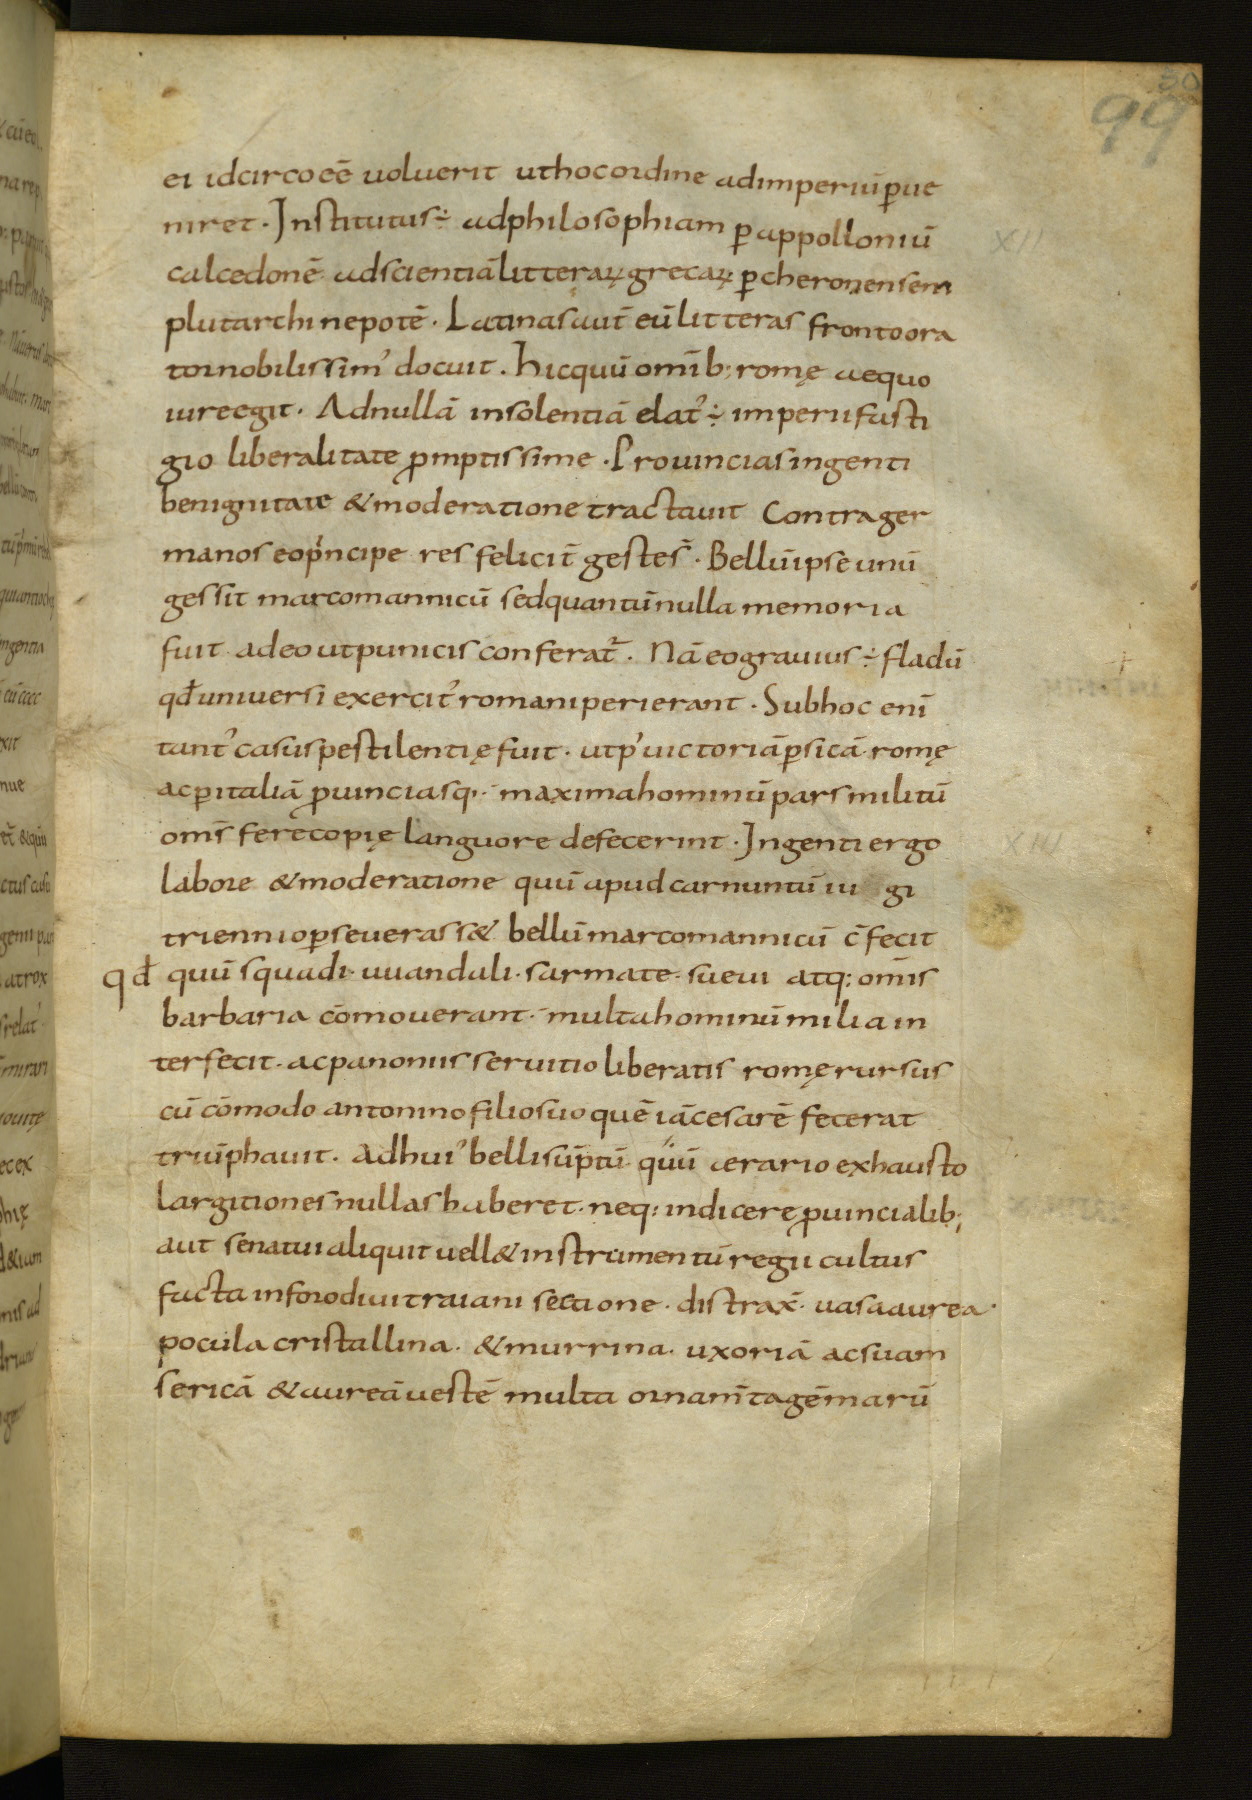 30
99
ei idcirco eē uoluerit ut hoc ordine ad imperiū ꝑue
niret · Institutus ÷ ad philosophiam ꝑ appolloniū
XII
calcedonē ad scientiā litteraꝝ grecaꝝ ꝑ cheronensem
plutarchi nepotē · Latinas aut̄ eū litteras fronto ora
tor nobilissim᾽ docuit · hic quū omīb; romę aequo
iure egit · Ad nullā insolentiā elat᾽ ÷ imperii fasti
gio liberalitate ꝓmptissime · Prouincias ingenti
benignitate & moderatione tractauit Contra ger
manos eo pͥncipe res felicit̄ gestes̄ · Bellū ipse unū
gessit marcomannicū sed quantū nulla memoria
fuit adeo ut punicis conferat᷑ · Nā eo grauius ÷ fladū
qđ uniuersi exercit᾽ romani perierant · Sub hoc enī
tant᾽ casus pestilentię fuit · ut p᾽ uictoriā ꝑsicā · romę
ac ꝑ italiā ꝓuinciasq; · maxima hominū pars militū
om̄s fere copię languore defecerint · Ingenti ergo
XIII
labore & moderatione quū apud carnuntū iu gi
triennio ꝑseuerass& bellū marcomannicū c̄fecit
qđ quū squadi · uuandali · sarmate · sueui atq; omīs
barbaria cōmouerant · multa hominū milia in
terfecit · ac panoniis seruitio liberatis romę rursus
cū cōmodo antonino filio suo quē iā cesarē fecerat
triūphauit · Ad hui᾽ belli sūptū quū aerario exhausto
largitiones nullas haberet · neq; indicere ꝓuincialib;
aut senatui aliquit uell& instrumentū regii cultus
facta in foro diui traiani sectione · distrax̄ · uasa aurea ·
pocula cristallina · & murrina · uxoriā ac suam
sericā & aureā uestē multa ornam̄ta gēmarū